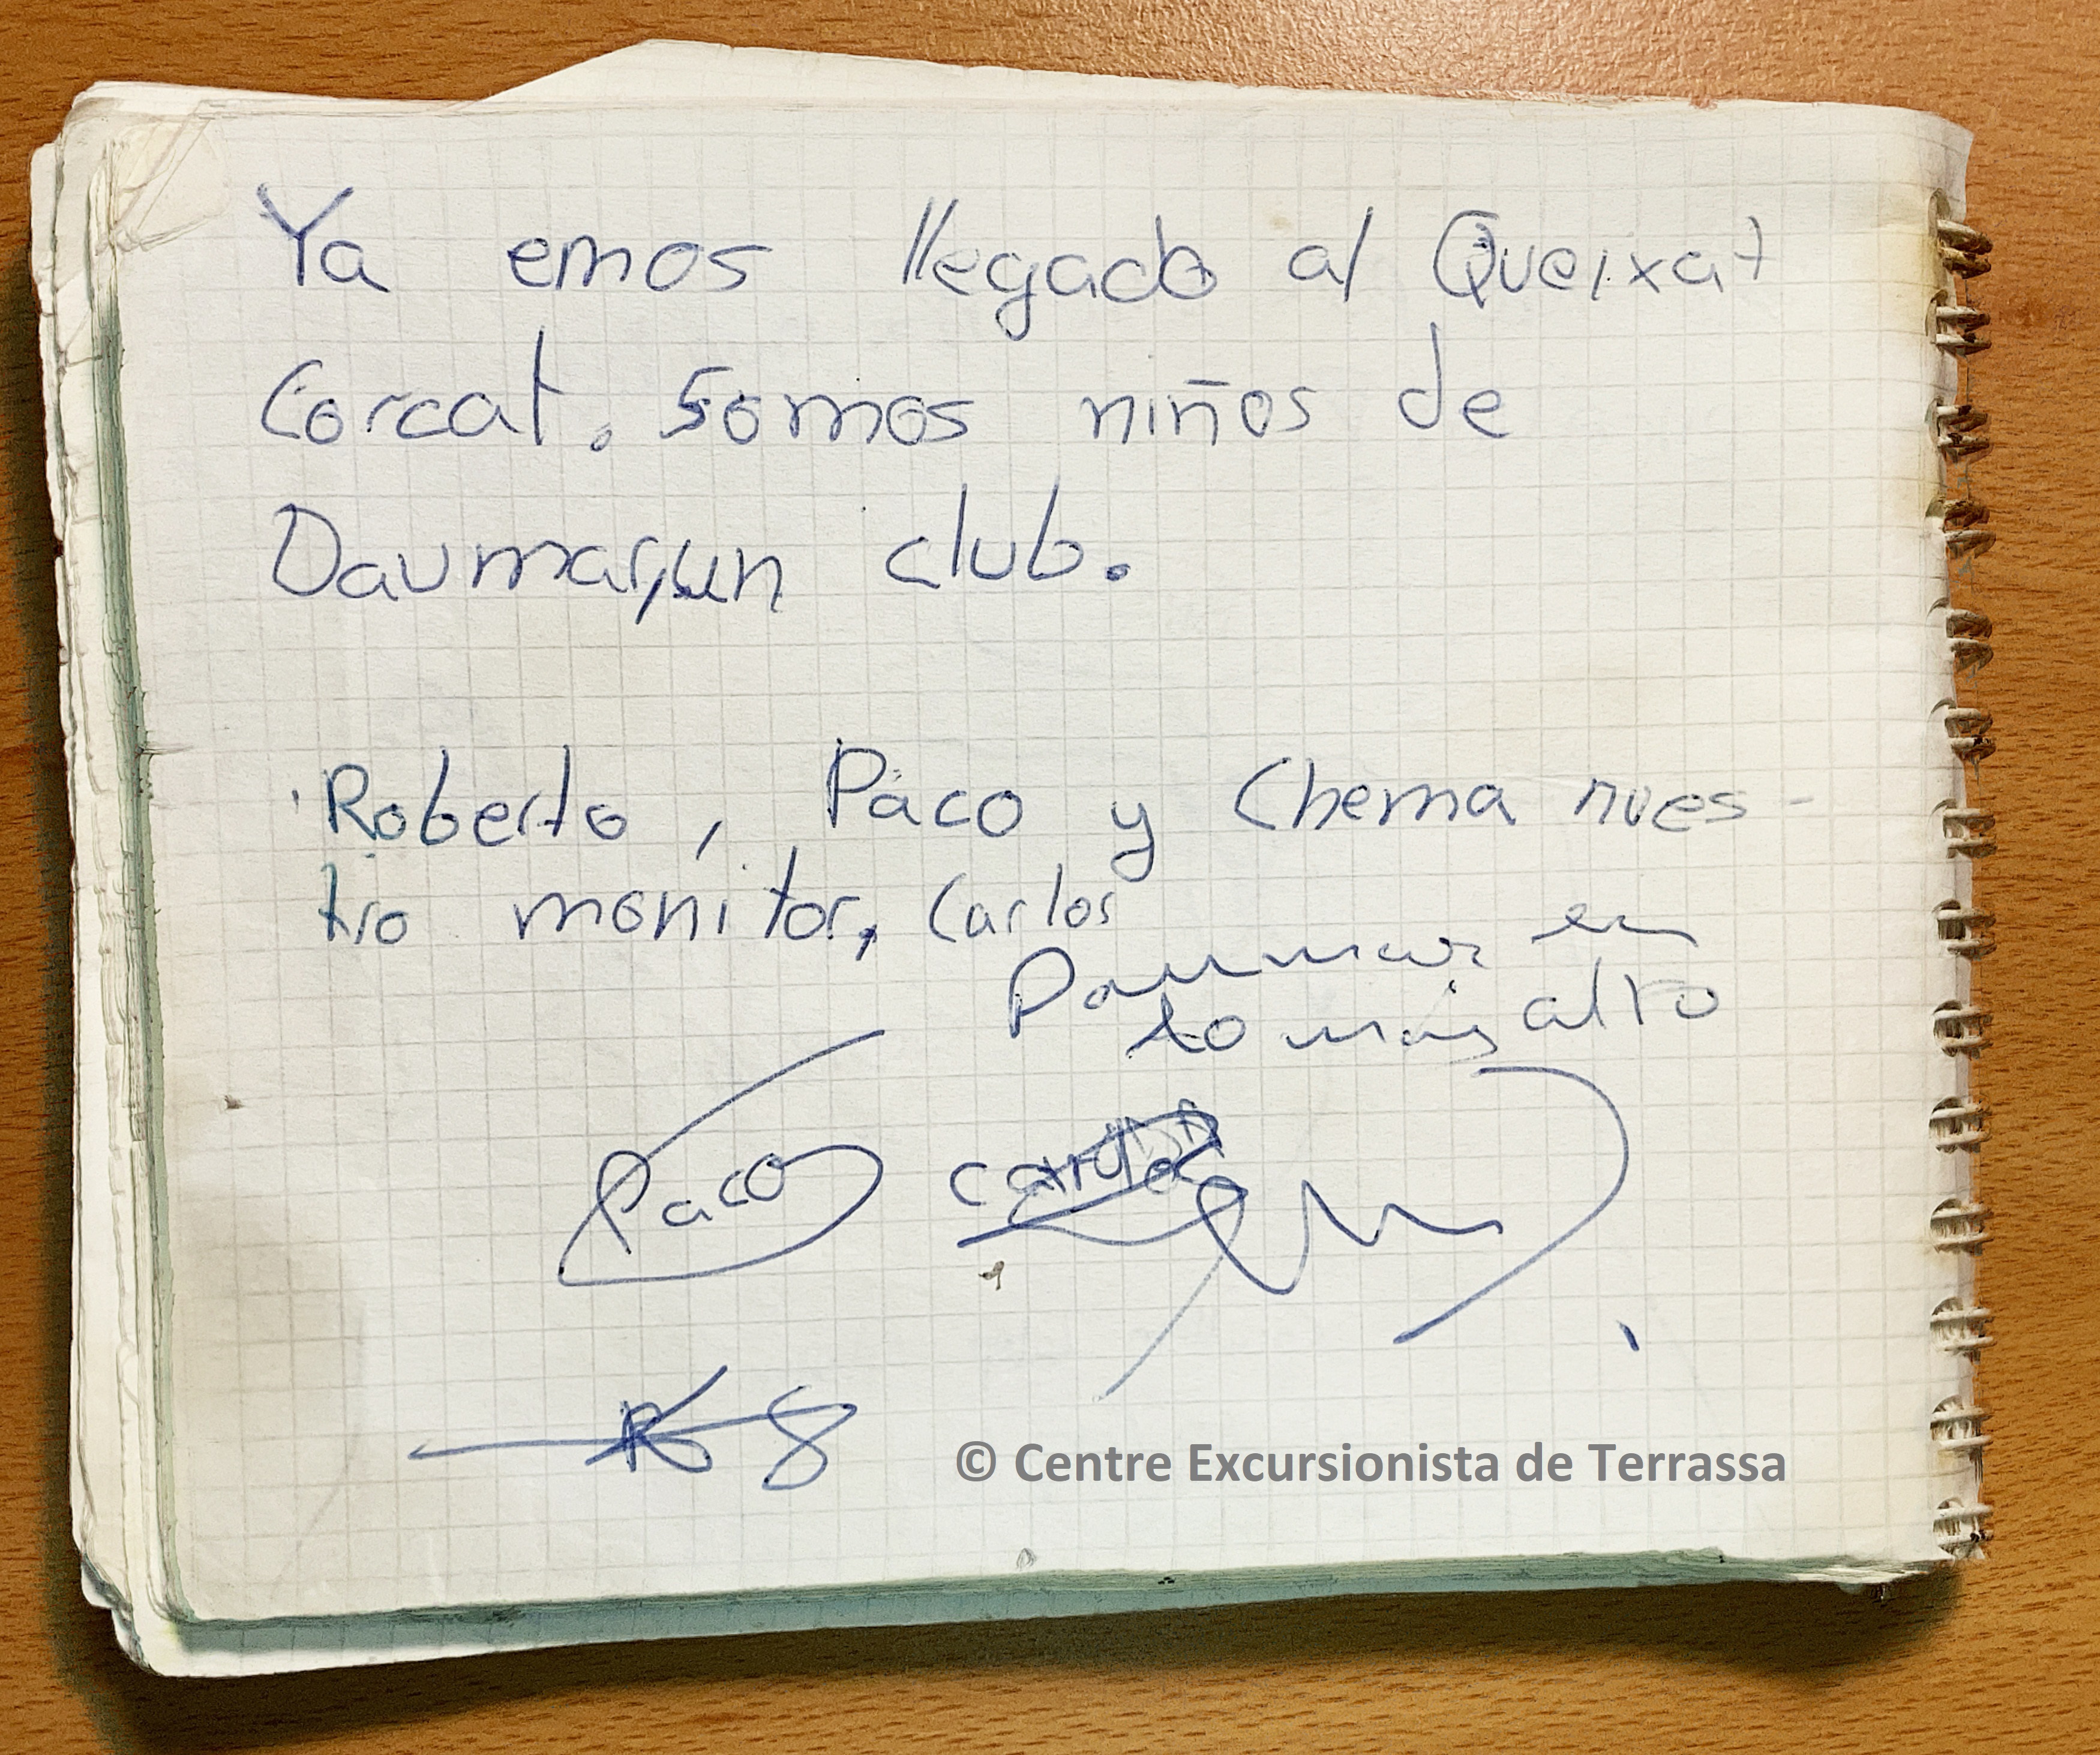 Ya emos llegado al Queixat
Corcat. Somos niños de
Daumar, un club.
Roberto, Paco y Chema nues-
tro monitor, Carlos
Daumar en
lo más alto
Paco
© Centre Excursionista de Terrassa